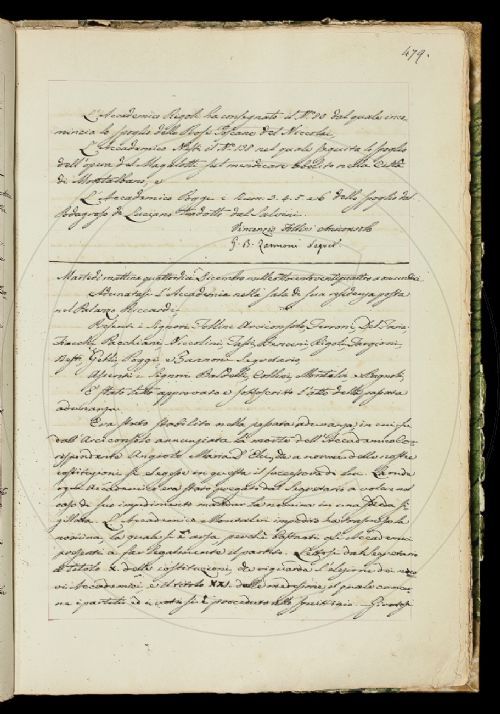 479.
L'Accademico Rigoli ha consegnato il N.° 80 dal quale inco-
mincia lo spoglio delle Prose Toscane del Niccolai,
L'Accademico Nesti il N.° 138 nel quale seguita lo spoglio
dell'opera del Magalotti sul mendicare abolito nella Città
di Montalbano, e
L'Accademico Poggi i Num. 3. 4. 5. e 6 dello spoglio del
Podagroso di Luciano tradotto dal Salvini.
Vincenzio Follini Arciconsolo
G. B. Zannoni Segret.°
Martedì mattina quattordici Dicembre milleottocentoventiquattro a ore undici
Adunatasi l'Accademia nella sala di sua residenza posta
nel Palazzo Riccardi,
Presenti i Signori Follini Arciconsolo, Ferroni, Del Furia
Fiacchi, Pacchiani, Niccolini, Bencini, Rigoli, Targioni,
Nesti, Gelli, Poggi e Zannoni Segretario,
Assenti i Signori Baldelli, Collini, Montalvi e Bagnoli,
È stato letto approvato e soscritto l'atto della passata
adunanza.
Era stato stabilito nella passata adunanza, in cui fu
dall'Arciconsolo annunziata la morte dell'Accademico Cor-
rispondente Angiolo Maria d'Elci, che a norma delle nostre
costituzioni si elegesse in questa il successore di lui. Laonde
ogni Accademico era stato pregato dal Segretario a voler nel
caso di suo impedimento mandar la nomina in una scheda si-
gillata. L'Accademico impedito ha trasmessa la
nomina, la quale si è arsa, perchè bastanti gli Accademici
presenti a far legittimamente il partito. Lettosi dal Segretario
il titolo X delle costituzioni, che riguarda l'elezione dei nuo-
vi Accademici e il titolo XXI. delle medesime, il quale concer-
ne i partiti ed i voti si è proceduto allo squittinio. Girata